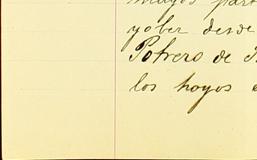 mayor part
yober desde
Potrero de
los hoyos